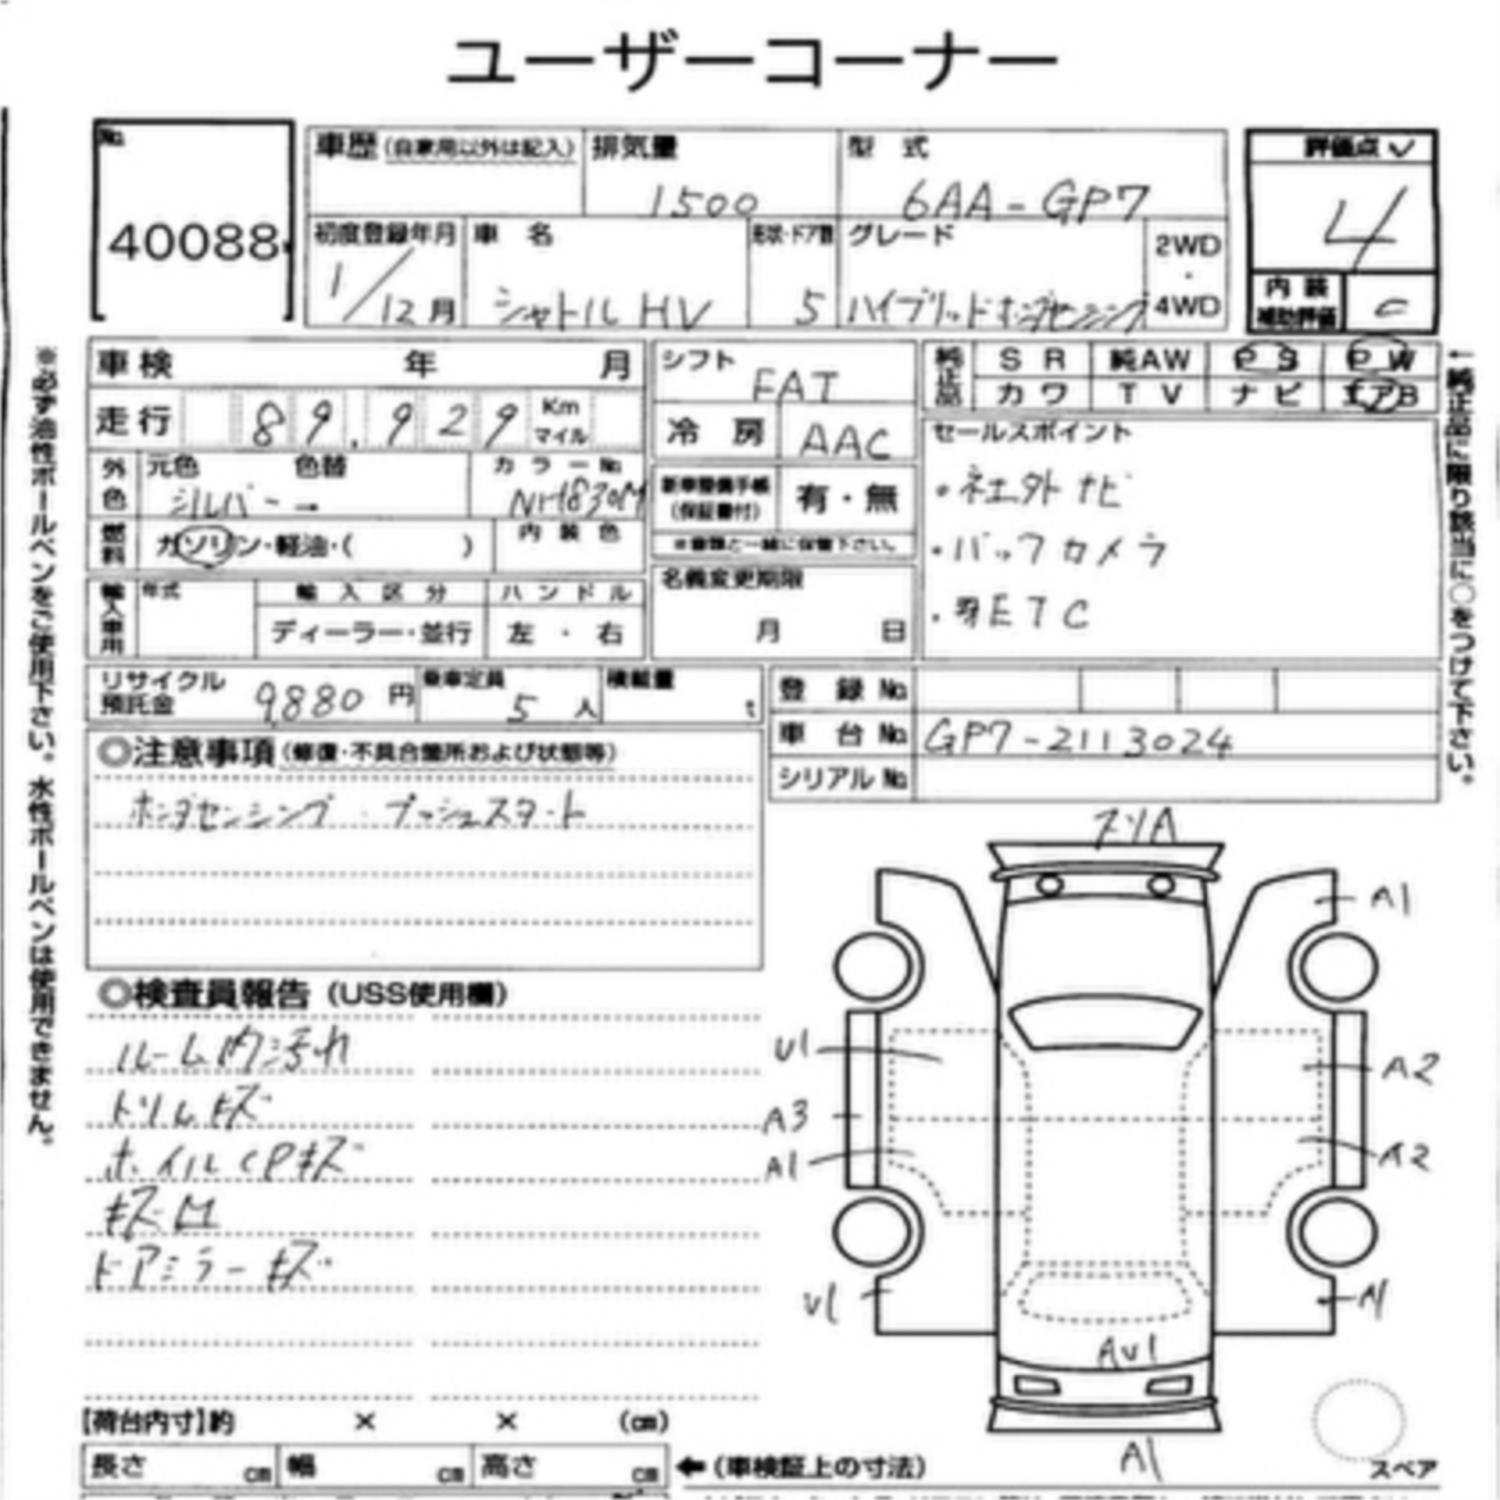 ユーザーコーナー
No.
40088
車歴(自家用以外は記入) 排気量 型 式 評価点
1500 6AA-GP7 4
初度登録年月 車 名 形状・ドア数 グレード 2WD・4WD
1/12月 シャトルHV 5 ハイブリッドホンダセンシング
内装補助評価 C
車検 年 月 シフト FAT
純正品 SR 純AW PS PW
カワ TV ナビ エアB
走行 89,929 Km マイル
冷房 AAC
セールスポイント
・社外ナビ
・バックカメラ
ETC
外色 元色 色替 カラーNo.
シルバー → NH830M
新車整備手帳(保証書付) 有・無
※書類と一緒に保管下さい。
燃料 ガソリン・軽油・( ) 内装色
輸入車用 年式 輸入区分 ハンドル
ディーラー・並行 左・右
名義変更期限
月 日
リサイクル預託金 9,880円 乗車定員 5人 積載量 t
登録No.
車台No. GP7-2113024
シリアルNo.
◎注意事項(修復・不具合箇所および状態等)
ホンダセンシング・プッシュスタート
◎検査員報告(USS使用欄)
ルーム内汚れ
トリムキズ
ホイルCPキズ
ドアミラーキズ
A1
U1
A2
A3
A1
A2
U1
AU1
A1
【荷台内寸】約 × × (cm)
長さ cm 幅 cm 高さ cm ←(車検証上の寸法)
スペア
※必ず油性ボールペンをご使用下さい。水性ボールペンは使用できません。
↑純正品に限り該当に○をつけて下さい。